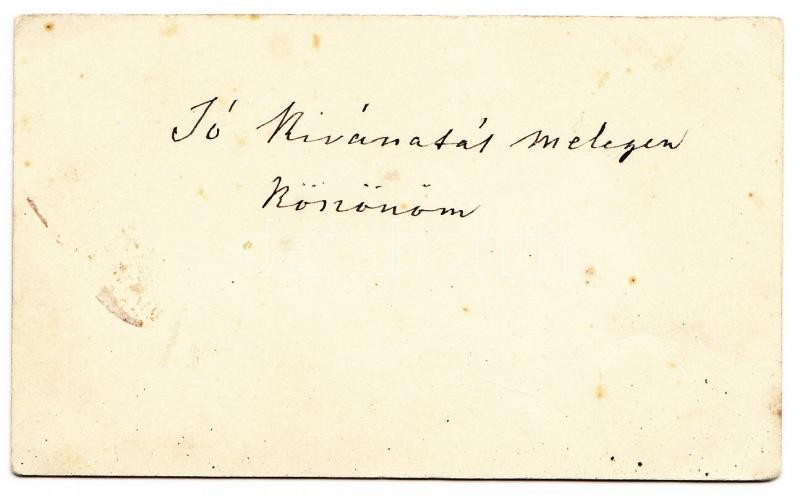 Jó Kivánatát melegen
köszönöm
darabanth